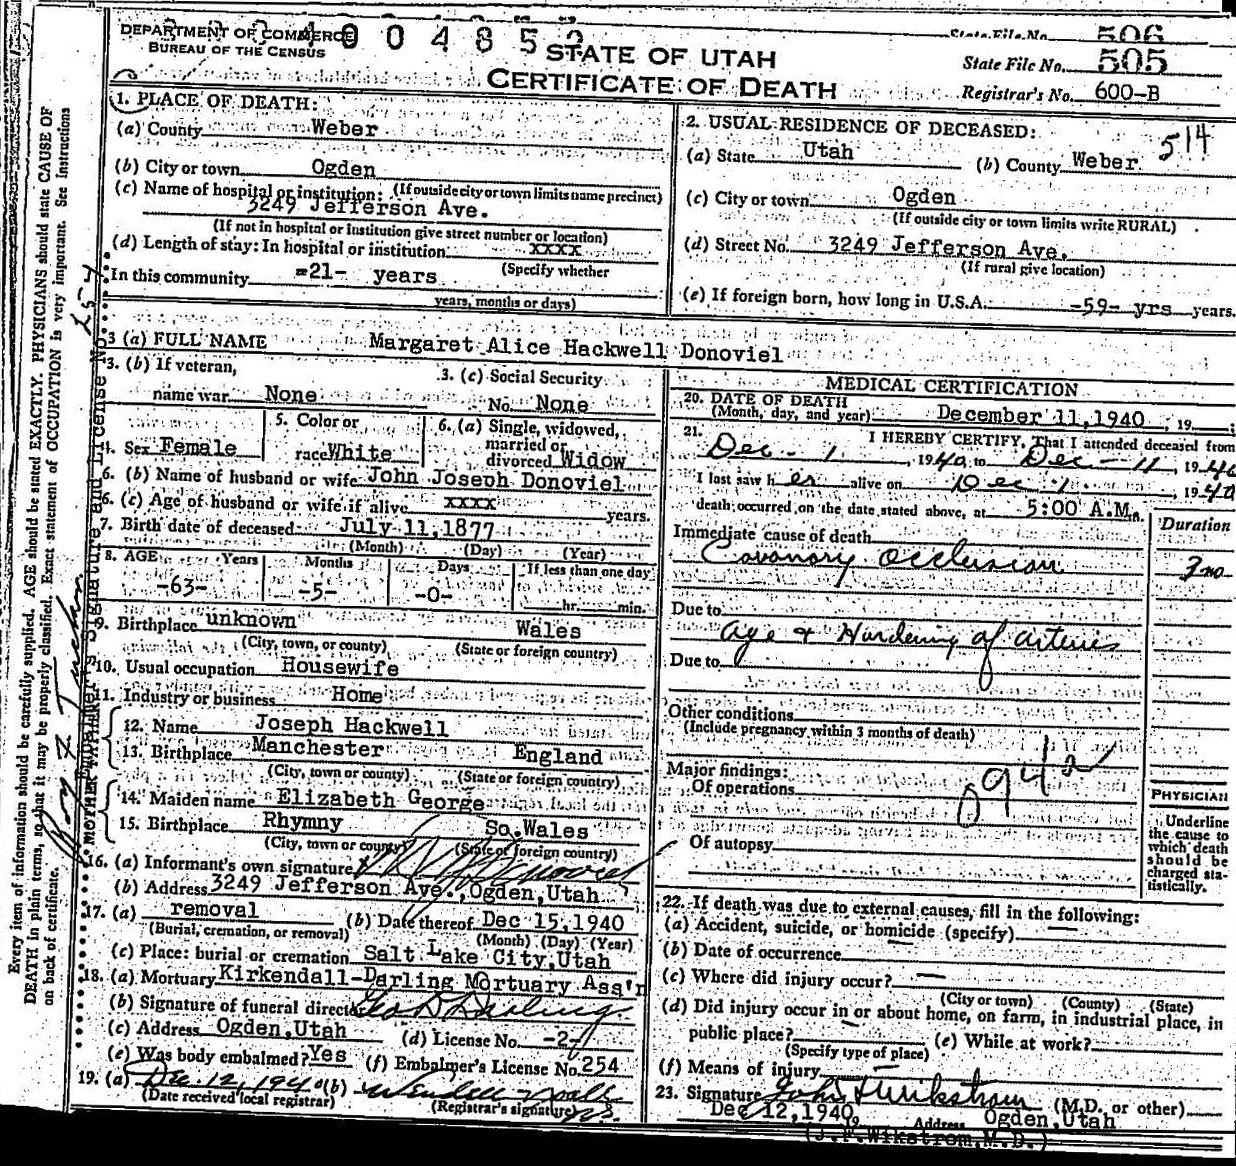 DEPARTMENT OF COMMERCE
BUREAU OF THE CENSUS
STATE OF UTAH
CERTIFICATE OF DEATH
State File No. 506
State File No. 505
Registrar's No. 600-B
1. PLACE OF DEATH:
(a) County Weber
(b) City or town Ogden
(If outside city or town limits name precinct)
(c) Name of hospital or institution:
3249 Jefferson Ave.
(If not in hospital or institution give street number or location)
(d) Length of stay: In hospital or institution xxxx
(Specify whether
In this community -21- years
years, months or days)
2. USUAL RESIDENCE OF DECEASED:
514
(a) State Utah (b) County Weber
(c) City or town Ogden
(If outside city or town limits write RURAL)
(d) Street No. 3249 Jefferson Ave.
(If rural give location)
(e) If foreign born, how long in U.S.A. -59- yrs years.
3 (a) FULL NAME Margaret Alice Hackwell Donoviel
3. (b) If veteran,
name war None
3. (c) Social Security
No. None
4. Sex Female
5. Color or
race White
6. (a) Single, widowed,
married or
divorced Widow
6. (b) Name of husband or wife John Joseph Donoviel
6. (c) Age of husband or wife if alive xxxx years.
7. Birth date of deceased July 11, 1877
(Month) (Day) (Year)
8. AGE Years Months Days If less than one day
-63- -5- -0- hr. min.
9. Birthplace unknown Wales
(City, town, or county) (State or foreign country)
10. Usual occupation Housewife
11. Industry or business Home
12. Name Joseph Hackwell
13. Birthplace Manchester England
(City, town or county) (State or foreign country)
MOTHER FATHER
14. Maiden name Elizabeth George
15. Birthplace Rhymny So. Wales
(City, town or county) (State or foreign country)
16. (a) Informant's own signature
(b) Address 3249 Jefferson Ave., Ogden, Utah
17. (a) removal (b) Date thereof Dec 15, 1940
(Burial, cremation, or removal) (Month) (Day) (Year)
(c) Place: burial or cremation Salt Lake City, Utah
18. (a) Mortuary Kirkendall-Darling Mortuary Ass'n
(b) Signature of funeral director Geo D Darling
(c) Address Ogden, Utah (d) License No. -27
(e) Was body embalmed? Yes (f) Embalmer's License No. 254
19. (a) Dec. 12, 1940 (b)
(Date received local registrar) (Registrar's signature)
MEDICAL CERTIFICATION
20. DATE OF DEATH
(Month, day, and year) December 11, 1940, 19
21. I HEREBY CERTIFY, That I attended deceased from
Dec - 1, 1940 to Dec - 11, 1940
I last saw her alive on Dec 1, 1940
death occurred on the date stated above, at 5:00 A.M.
Duration
Immediate cause of death
Coronary Occlusion 3 mo
Due to
Age & Hardening of arteries
Due to
Other conditions
(Include pregnancy within 3 months of death)
Major findings:
Of operations
094a
Of autopsy
PHYSICIAN
Underline
the cause to
which death
should be
charged sta-
tistically.
22. If death was due to external causes, fill in the following:
(a) Accident, suicide, or homicide (specify)
(b) Date of occurrence
(c) Where did injury occur?
(City or town) (County) (State)
(d) Did injury occur in or about home, on farm, in industrial place, in
public place? (e) While at work?
(Specify type of place)
(f) Means of injury
23. Signature John F Wikstrom (M.D. or other)
Dec 12, 1940, 19 Address Ogden, Utah
(J.F. Wikstrom, M.D.)
Every item of information should be carefully supplied. AGE should be stated EXACTLY. PHYSICIANS should state CAUSE OF
DEATH in plain terms, so that it may be properly classified. Exact statement of OCCUPATION is very important. See instructions
on back of certificate.
Embalmer's Signature and License No. 254